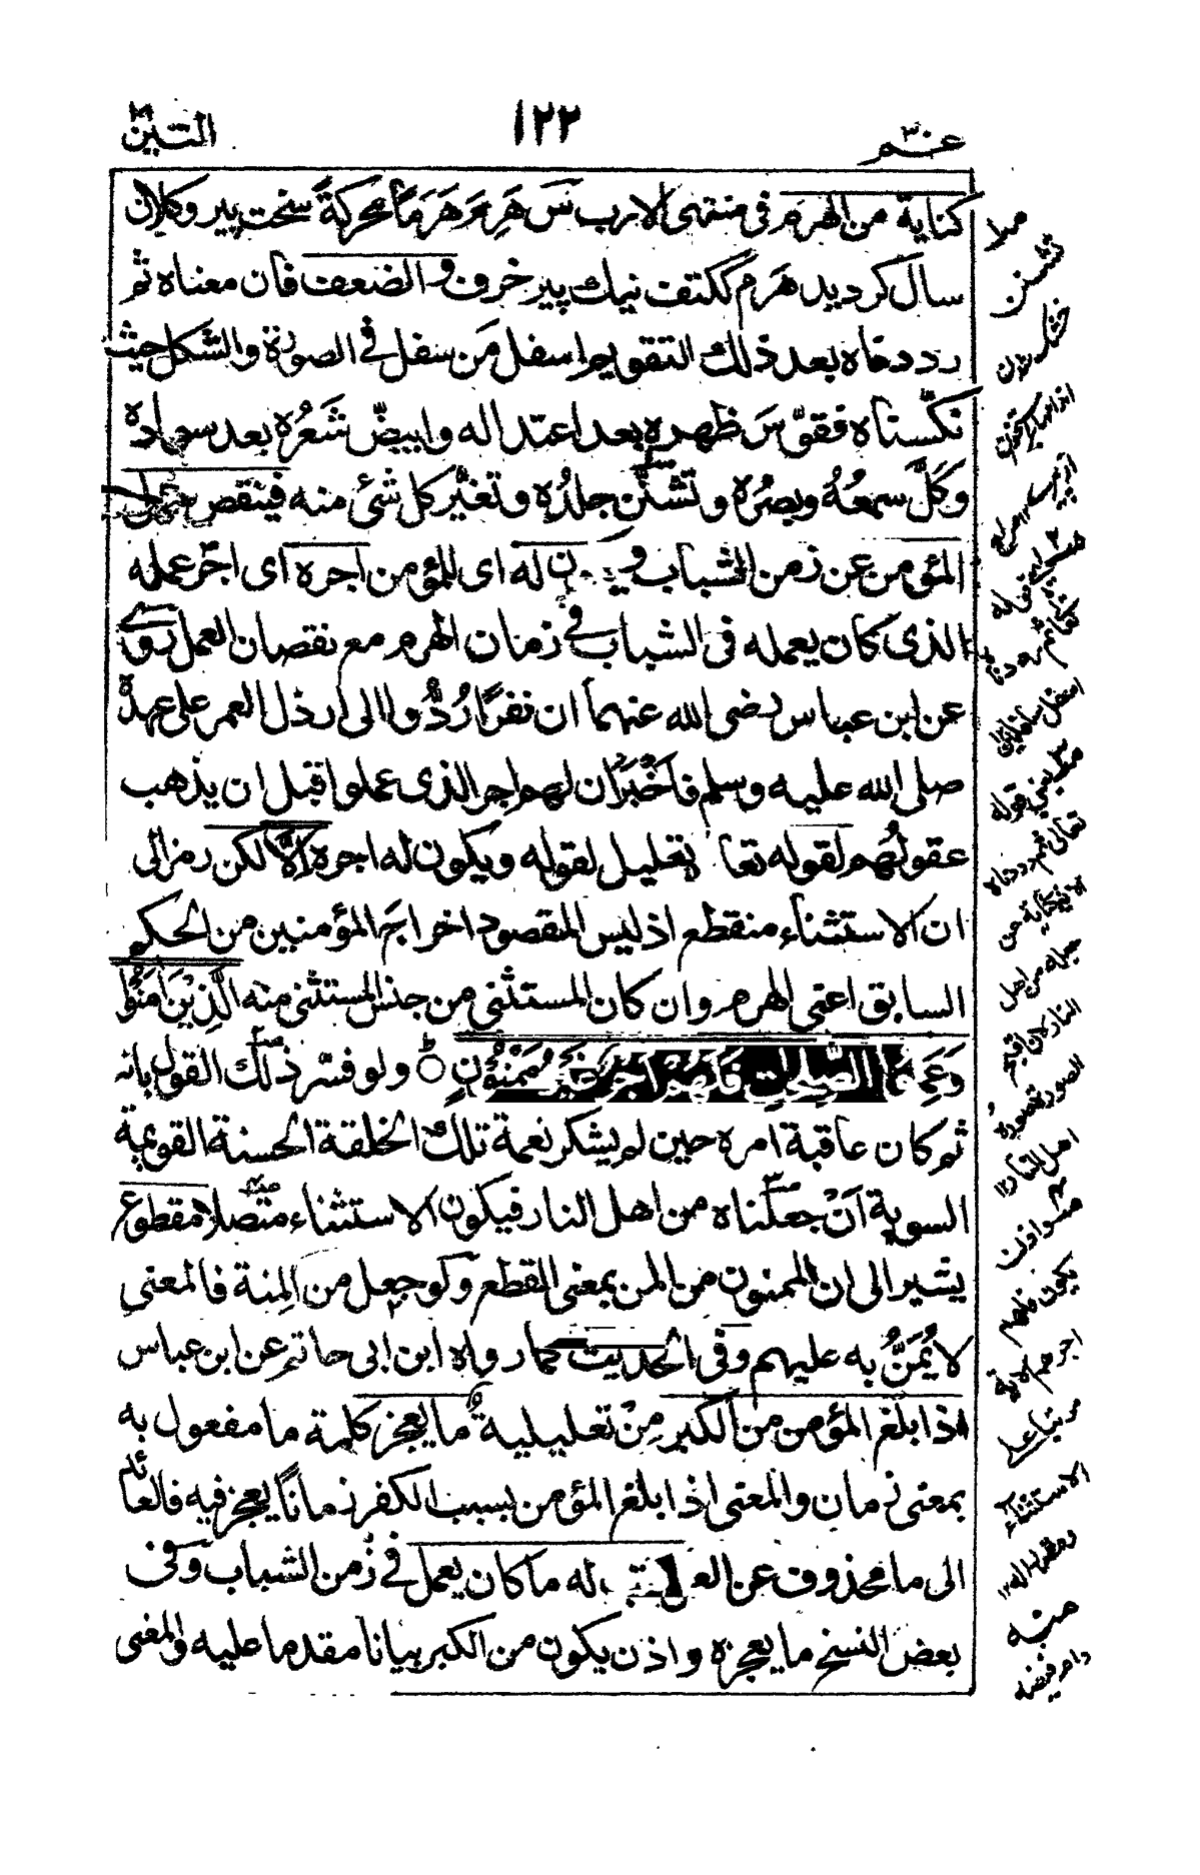 عم ٣٠
١٢٢
التين
كناية من الهرم في منتهى الارب سَ هَرِمَ هَرَمًا محركةً سخت پير وكلان
سال كرديد هَرِم ككتف نيك پير خرف والضعف فان معناه ثم
رددناه بعد ذلك التقويم اسفل مَن سفل في الصورة والشكل حيث
نكّسناه فقوّسَ ظهره بعد اعتداله وابيضّ شَعْرُه بعد سواده
وكَلَّ سمعُهُ وبصرُه وتشنّن جلدُه وتغيّر كل شئ منه فينقص عمل
المؤمن عن زمن الشباب و له اى للمؤمن اجره اى اجر عمله
الذى كان يعمله فى الشباب في زمان الهرم مع نقصان العمل روى
عن ابن عباس رضى الله عنهما ان نفرًا رُدُّوا الى ارذل العمر على عهده
صلى الله عليه وسلم فاَخْبَرَ ان لهم اجر الذى عملوا قبل ان يذهب
عقولُهم لقوله تعا تعليل لقوله ويكون له اجره اِلَّا لكن رمز الى
ان الاستثناء منقطع اذ ليس المقصود اخراجَ المؤمنين من الحكم
السابق اعنى الهرم وان كان المستثنى من جنس المستثنى منه الَّذِيْنَ اٰمَنُوْا
وَعَمِلُوا الصّٰلِحٰتِ فَلَهُمْ اَجْرٌ غَيْرُ مَمْنُوْنٍ ۝ ولو فسّر ذلك القول بانه
ثم كان عاقبة امره حين لم يشكر نعمة تلك الخلقة الحسنة القويمة
السوية اَنْ جعلناه من اهل النار فيكون الاستثناء متصلا مقطوع
يشير الى ان الممنون من المن بمعنى القطع وكو جعل من المِنة فالمعنى
لا يُمَنُّ به عليهم وفى الحديث كما رواه ابن ابى حاتم عن ابن عباس
اذا بلغ المؤمن من الكبر مِنْ تعليلية ما يعجز كلمة ما مفعول به
بمعنى زمان والمعنى اذا بلغ المؤمن بسبب الكفر زمانًا يعجز فيه فالعائد
الى ما محذوف عن العمل له ما كان يعمل في زمن الشباب وفى
بعض النسخ ما يعجزه واذن يكون من الكبر بيانا مقدما عليه والمعنى
تشنن
قوله
تعالى ثم رددناه
من اهل
الصورة
اهل النار
يكون فلهم
اجر
الاستثناء
منه